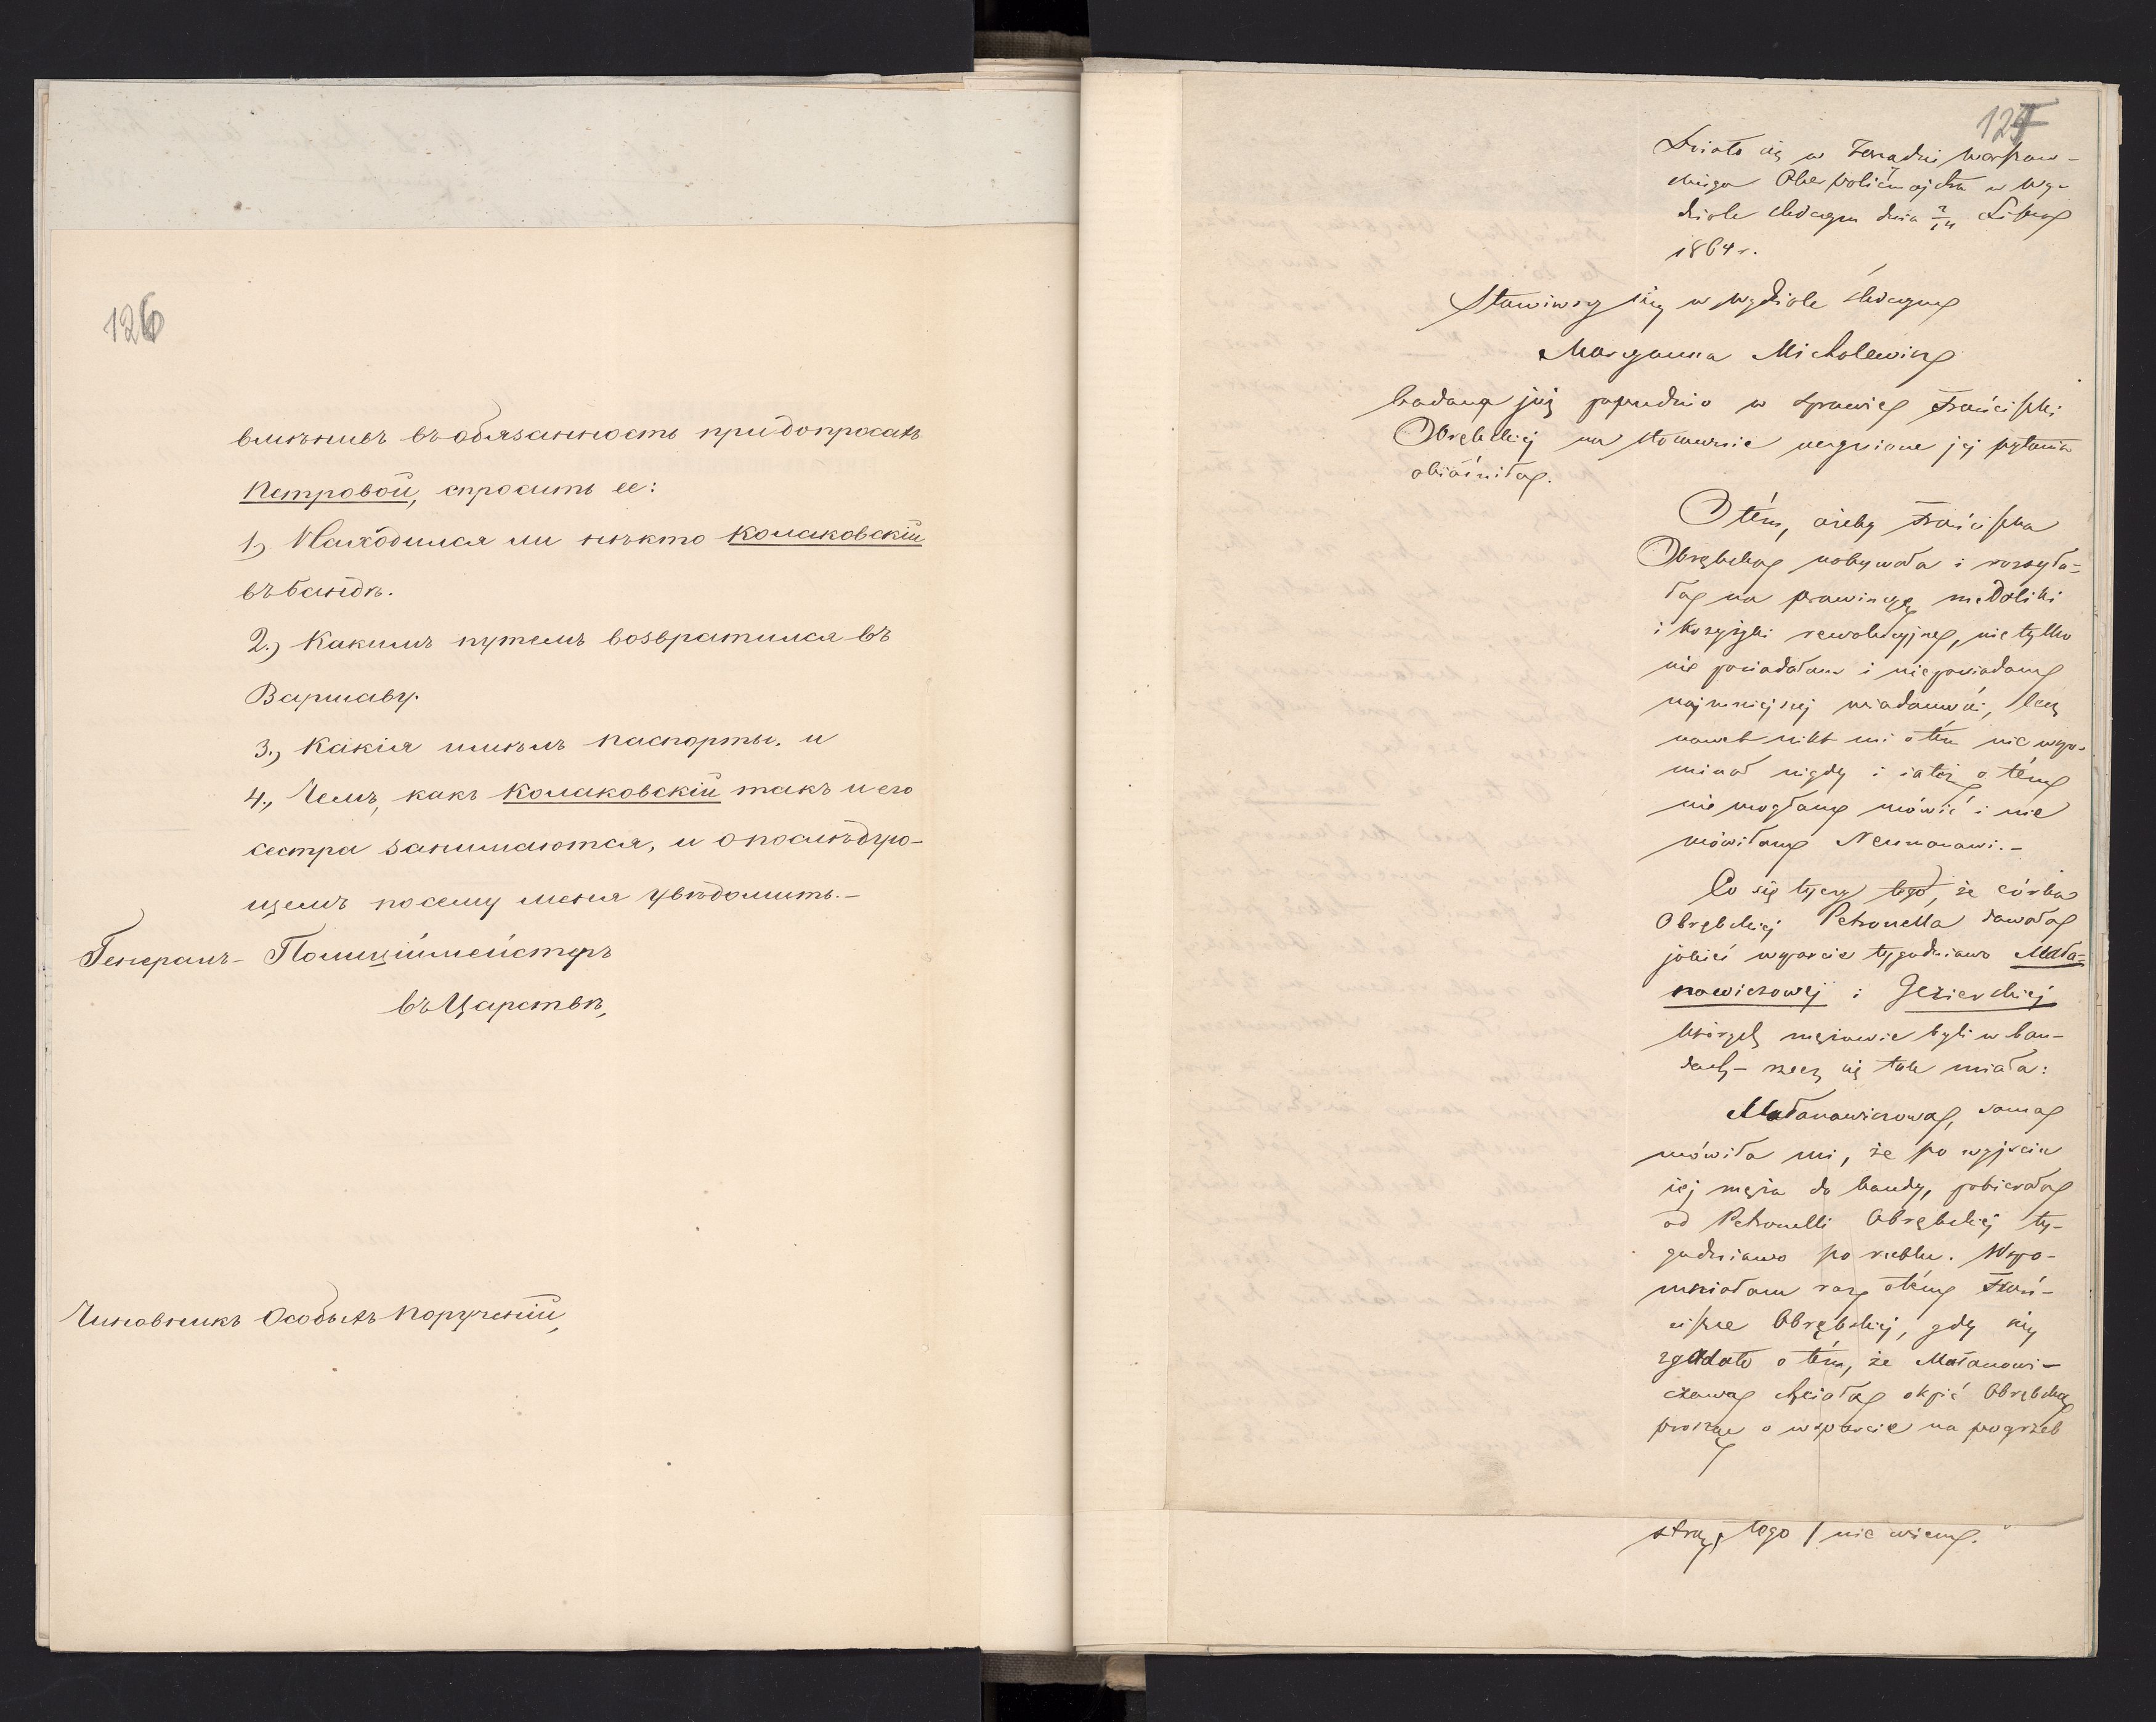 126
вмѣнивъ въ обязанность при допросахъ
Петровой, спросить ее:
1.) Находился ли нѣкто Колаковскій
въ бандѣ.
2.) Какимъ путемъ возвратился въ
Варшаву.
3.) Какія имѣлъ паспорты. и
4.) Чемъ, какъ Колаковскій такъ и его
сестра занимаются, и о послѣдую-
щемъ посему меня увѣдомить.-
Генералъ- Полиціймейстеръ
въ Царствѣ,
Чиновникъ Особыхъ Порученій,
127
Działo się w Zarządzie Warszaw-
skiego Oberpolicmajstra w Wy-
dziale śledczym dnia 2/14 Listop
1864 r.
Stawiwszy się w Wydziale śledczym
Maryanna Michalewicz
badana już poprzednio w sprawie Franciszki
Obrębskiej na stosownie uczynione jej pytania
objaśniła.
O tém, ażeby Franciszka
Obrębska nabywała i rozsyła-
ła na prowincyę medaliki
i krzyżyki rewolucyjne, nie tylko
nie posiadałam i nie posiadam
najmniejszej wiadomości, lecz
nawet nikt mi o tém nie wspo-
minał nigdy i ja też o tém
nie mogłam mówić i nie
mówiłam Neumanowi.-
Co się tyczy tego, że córka
Obrębskiej Petronella dawała
jakieś wsparcie tygodniowo Mała-
nowiczowej i Jezierskiej
których mężowie byli w ban-
dach - rzecz się tak miała:
Małanowiczowa, sama
mówiła mi, że po wyjściu
jej męża do bandy, pobierała
od Petronelli Obrębskiej ty-
godniowo po rublu. Wspo-
mniałam raz o tém Fran-
ciszce Obrębskiej, gdy się
zgadało o tém, że Małanowi-
czowa chciała okpić Obrębską
prosząc o wsparcie na pogrzeb
tego nie wiem.